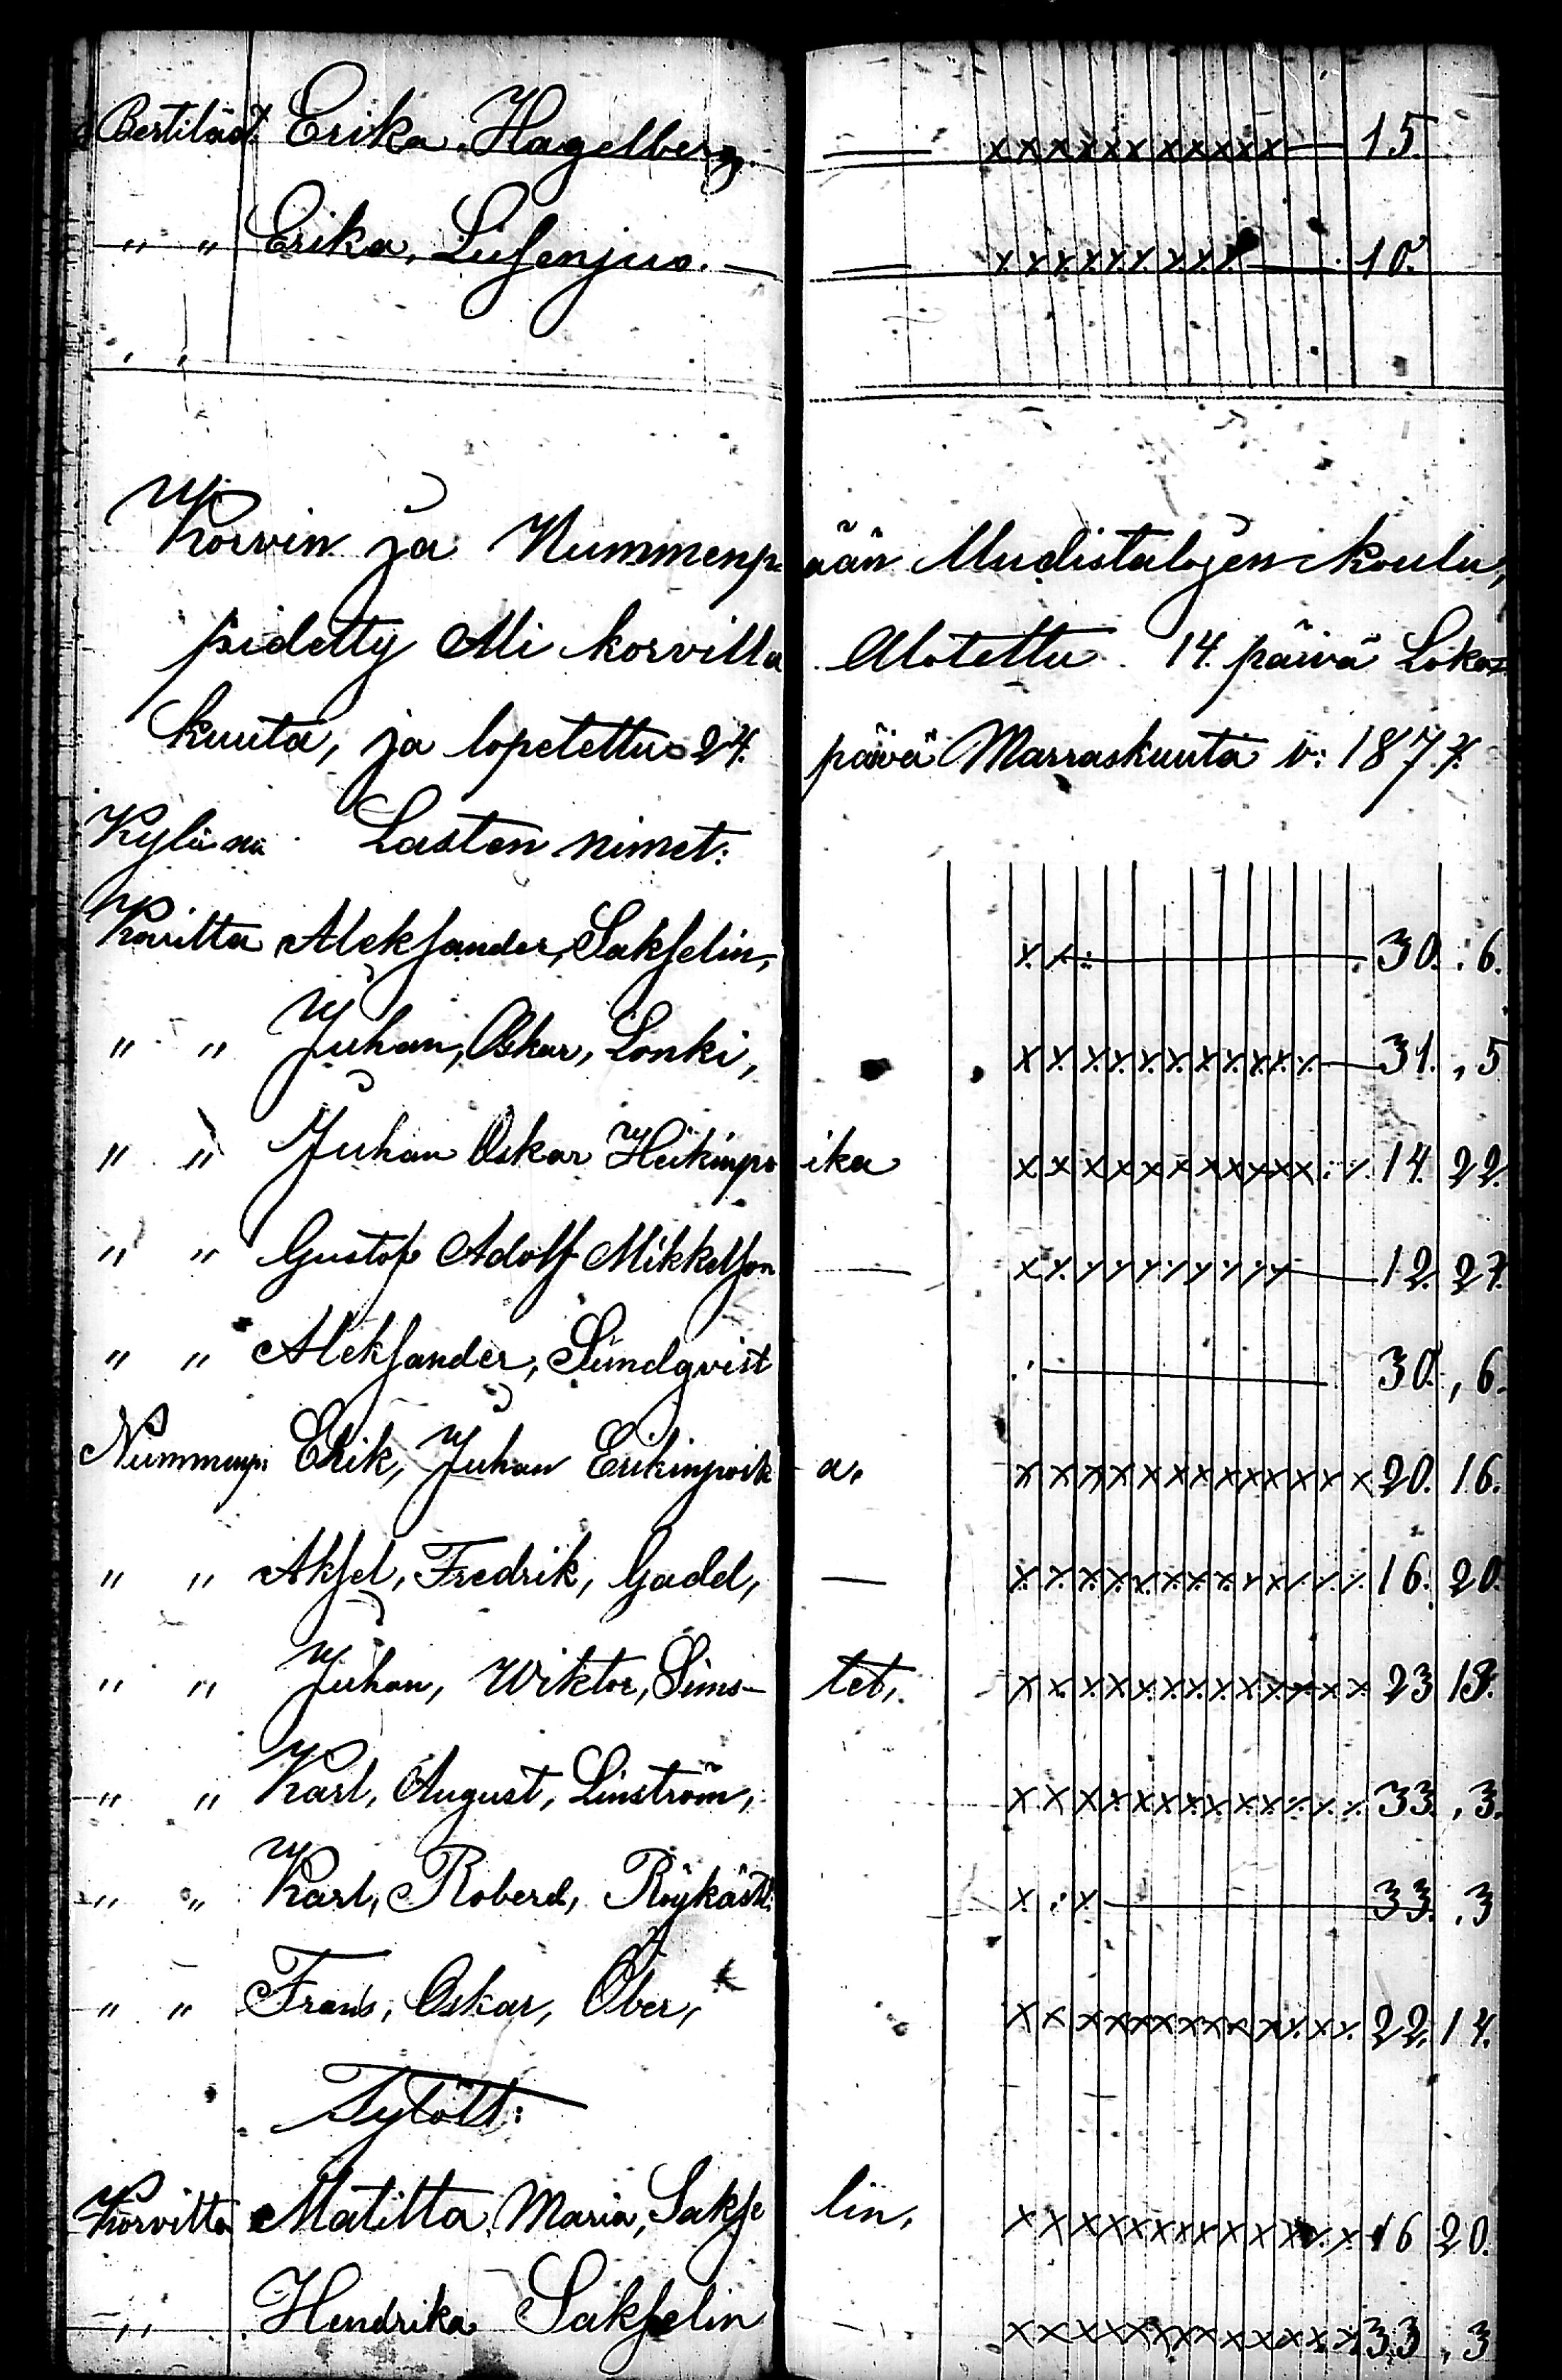 Bertiläst. Erika Hagelberg. — x x x x x x x x x x x — 15.
" " Erika, Lifsenjus. — — x x x x x x x x x — 10.
" "
Korvin ja Nummenpään Uudistalojen koulu,
pidetty Ali korvilla. Alotettu 14. päivä Loka=
kuuta, ja lopetettu 24. päivä Marraskuuta v: 1877.
Kylän Lasten nimet:
Korvilta Aleksander, Sakselin, x x — 30. : 6.
" " Juhan, Oskar, Lonki, x x x x x x x x x x x — 31. , 5
" " Juhan Oskar Heikinpoika x x x x x x x x x x x : x 14. 22.
" " Gustof Adolf Mikkelson — x x x x x x x x x x — 12. 27.
" " Aleksander, Sundqvist — 30. , 6.
Nummenp: Erik, Juhan Erikinpoika. x x x x x x x x x x x x x 20. 16.
" " Aksel, Fredrik, Gadd, — x x x x x x x x x x x x x 16. 20.
" " Juhan, Wiktor, Simstet, x x x x x x x x x x x x x 23 13.
" " Karl, August, Linström, x x x x x x x x x x x x x 33. , 3.
" " Karl, Roberd, Röykäst. x . x — 33. . 3
" " Frans, Oskar, Öber, x x x x x x x x x x x x x 22. 14.
Tytöt:
Korvilta Matilta Maria, Sakselin, x x x x x x x x x x x x x 16 20.
" Hendrika Sakselin — x x x x x x x x x x x x x 33 , 3